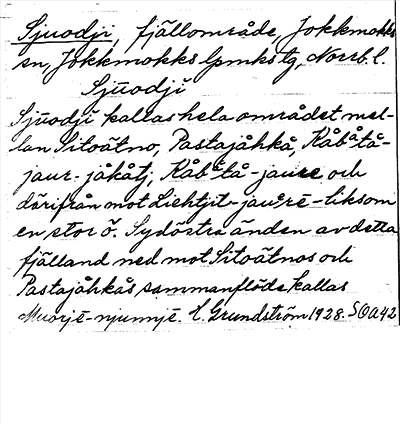 Sjuodji, fjällområde, Jokkmokks
sn, Jokkmokks lpmks tg, Norrb. l.
Sjūodjĭ
Sjūodjĭ kallas hela området mel-
lan Sitoätno, Pastajåhkå, Kåbatå-
jaur-jåkåtj, Kåbtå-jaure och
därifrån mot Liehtjit-jaurē - liksom
en stor ö. Sydöstra änden av detta
fjälland ned mot Sitoätnos och
Pastajåhkås sammanflöde kallas
Muorjē-njunnjē. H. Grundström 1928. SOA42